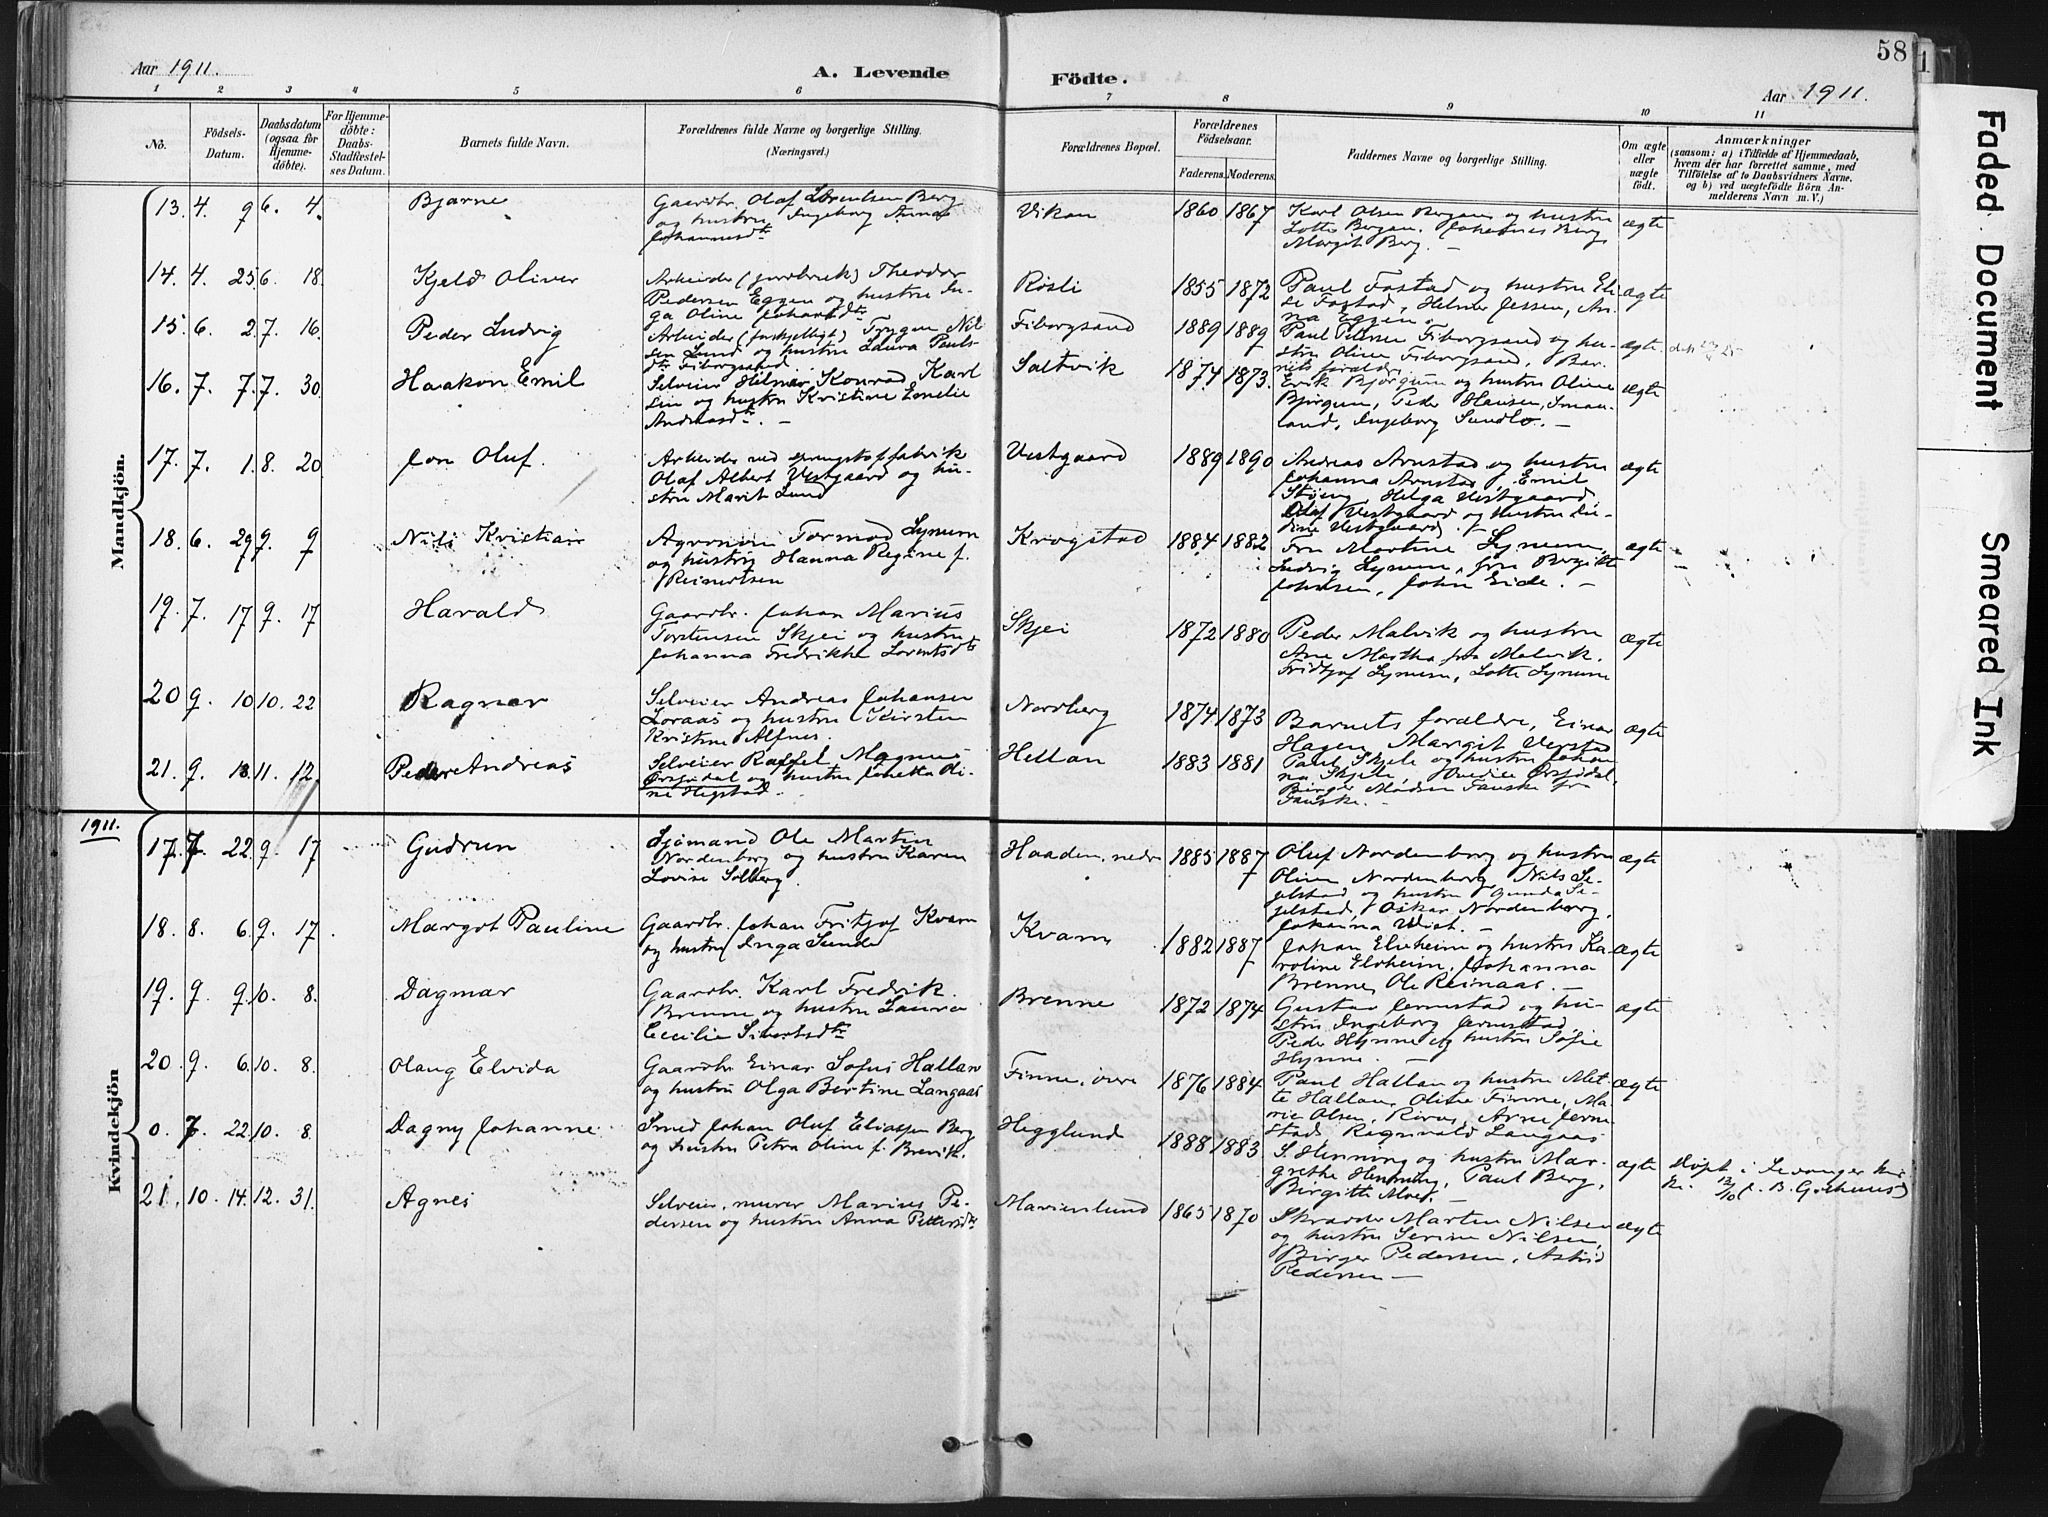 58
Aar 1911.
A. Levende
Födte.
Aar 1911.
1 2 3 4 5 6 7 8 9 10 11
No.
Födsels-
Datum.
Daabsdatum
(ogsaa for
Hjemme-
döbte).
For Hjemme-
döbte:
Daabs-
Stadfæstel-
ses Datum.
Barnets fulde Navn.
Forældrenes fulde Navne og borgerlige Stilling.
(Næringsvei.)
Forældrenes Bopæl.
Forældrenes
Födselsaar.
Faderens. Moderens.
Faddernes Navne og borgerlige Stilling.
Om ægte
eller
uægte
födt.
Anmærkninger
(saasom: a) i Tilfælde af Hjemmedaab,
hvem der har forrettet samme, med
Tilföielse af to Daabsvidners Navne.
og b) ved uægtefödte Börn An-
melderens Navn m. V.)
Mandkjön.
13. 4. 9 6. 4. Bjarne
Gaardbr. Olaf Lorentsen Berg
og hustru Ingeborg Anna
Johannesdtr
Vikan 1860 1867
Karl Olsen Bergan og hustru
Lotte Bergan. Johannes Berg
Margit Berg. —
ægte
14. 4. 25 6. 18. Kjeld Oliver
Arbeider (jordbruk) Theodor
Pedersen Eggen og hustru In-
ga Oline
Røsli 1855 1872
Paul Fostad og hustru Eli-
se Fostad, Helmer Jessen, An-
na Eggen.
ægte
15. 6. 2 7. 16. Peder Ludvig
Arbeider (forskjelligt) Trygve Nil-
sen Lund og hustru Laura Pauls-
dtr Fiborgsand.
Fiborgsand 1889 1889
Paul Petersen Fiborgsand og hu-
stru Oline Fiborgsand, Bar-
nets forældre
ægte
16. 7. 7 7. 30. Haakon Emil
Selveier Hilmar Konrad Karl
sen og hustru Kristine Emelie
Andreasdtr. —
Saltvik 1874 1873.
Erik Bjørgum og hustru Oline
Bjørgum, Peder Hansen, Smaa-
land, Ingeborg Sundlo. —
ægte
17. 7. 1. 8. 20 Jon Oluf.
Arbeider ved sprngstoffabrik
Olaf Albert Vestgaard og hu-
stru Marit Lund
Vestgaard 1889 1890
Andreas Arnstad og hustru
Johanna Arnstad, Emil
Støing, Helga Vestgaard
Olaf Vestgaard og hustru Lu-
dine Vestgaard. —
ægte
18. 6. 29 9. 9 Nils Kristian
Agronom Tormod Lynum
og hustru Hanna Regine f.
Reinertsen
Krogstad 1884 1882
Fru Martine Lynum,
Ludvig Lynum, fru Bergitte
Johnsen, John Eide. —
ægte
19. 7. 17 9. 17 Harald
Gaardbr. Johan Marius
Torstensen Skjei og hustru
Johanna Fredrikke Lorentsdtr
Skjei 1872 1880
Peder Malvik og hustru
Ane Martha fra Malvik.
Fridtjof Lynum, Lotte Lynum
ægte
20 9. 10 10. 22 Ragnar
Selveier Andreas Johansen
Loraas og hustru Kirsten
Kristine Alfnes.
Nordberg 1874 1873
Barnets forældre, Einar
Hagen Margit Verstad
ægte
21. 9. 13. 11. 12. Peder Andreas
Selveier Raffel Magnus
Ørsjødal og hustru Jonetta Oli-
ne Hegstad. —
Hellan 1883 1881
Paul Skjele og hustru Johan
na Skjele, Hvedice Ørsjødal,
Birger Madsen Fauske fra
Fauske. —
1911.
Kvindekjön
17. 7. 22 9. 17 Gudrun
Sjømand Ole Martin
Nordenborg og hustru Karen
Lovise Solberg.
Haaden, nedre 1885 1887
Oluf Nordenborg og hustru
Oline Nordenborg, Nils Se-
gelstad og hustru Gunda Se-
gelstad, Oskar Nordenborg,
Johanna Veist. —
ægte
18. 8. 6. 9. 17. Margot Pauline
Gaardbr. Johan Fritjof Kvam
og hustru Inga Sunde
Kvam 1882 1887
Johan Elvheim og hustru Ka-
roline Elvheim, Johanna
Brenne, Ole Reinaas. —
ægte
19. 9. 9. 10. 8. Dagmar
Gaardbr. Karl Fredrik
Brenne og hustru Laura
Cecilie Sivertsdtr
Brenne 1872 1874
Gustav Jermstad og hu-
stru Ingeborg Jermstad,
Peder Hynne og hustru Sofie
Hynne. —
ægte
20. 9. 6. 10. 8. Olaug Elvida
Gaardbr. Einar Sofus Hallan
og hustru Olga Bertine Langaas
Finne, øvre 1876 1884
Paul Hallan og hustru Met-
te Hallan, Oline Finne, Ma-
rie Olsen, Rira, Arne Jerm
stad, Ragnvald Langaas
ægte
0. 7. 22 10. 8. Dagny Johanne
Smed Johan Oluf Eliassen Berg
og hustru Petra Oline f. Brevik.
Hegglund 1888 1883
S. Henning og hustru Mar-
grethe Henning, Paul Berg,
Birgitte Alver. —
ægte
Døpt i Levanger kir
ke.
21. 10. 14. 12. 31. Agnes
Selveier, murer Marius Pe-
dersen og hustru Anna Pettersdtr
Marienlund 1865 1870
Skrædder Martin Nilsen
og hustru Serine Nilsen,
Birger Pedersen, Astrid
Pedersen —
ægte
Faded Document
Smeared Ink